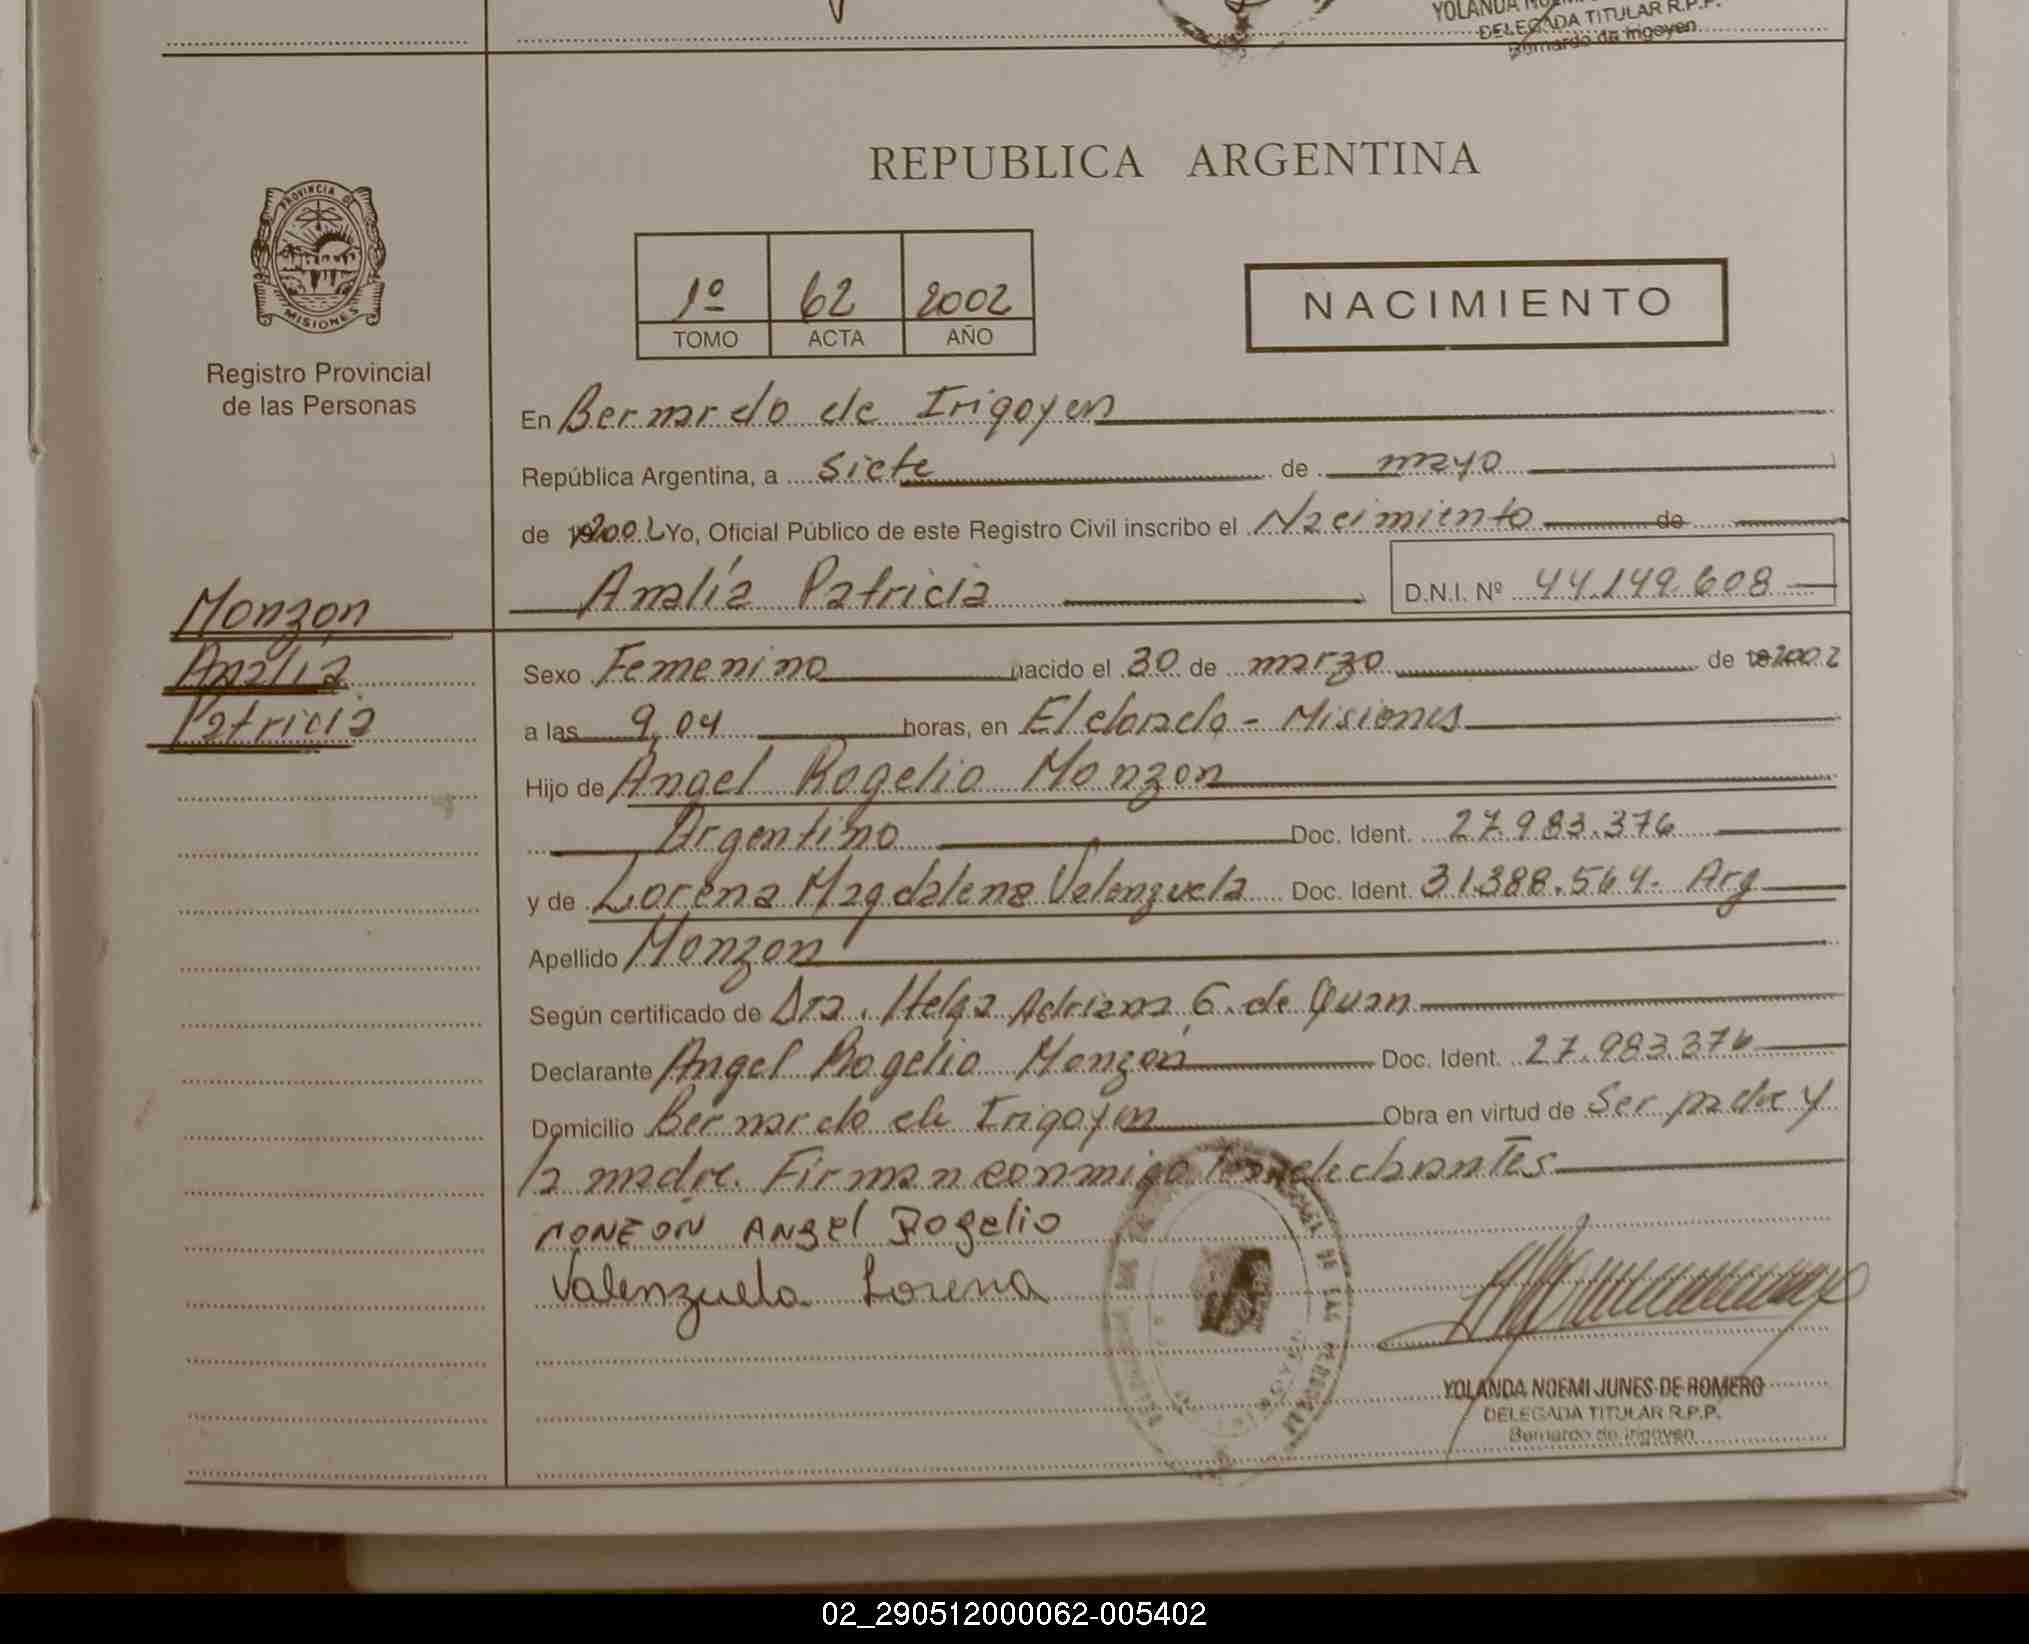 YOLANDA
DELEGADA TITULAR R.P.P.
Bernardo de Irigoyen
REPUBLICA ARGENTINA
PROVINCIA DE
MISIONES
Registro Provincial
de las Personas
1º 62 2002
TOMO ACTA AÑO
NACIMIENTO
En Bernardo de Irigoyen
República Argentina, a siete de mayo
de 2002 Yo, Oficial Público de este Registro Civil inscribo el Nacimiento de
Analía Patricia D.N.I. Nº 44.149.608
Monzon
Analía
Patricia
Sexo Femenino nacido el 30 de marzo de 2002
a las 9,04 horas, en Eldorado - Misiones
Hijo de Angel Rogelio Monzon
Argentino Doc. Ident. 27.983.376
y de Lorena Magdalena Valenzuela Doc. Ident. 31.388.564. Arg
Apellido Monzon
Según certificado de Dra. Helga Adriana G. de Quan
Declarante Angel Rogelio Monzon Doc. Ident. 27.983.376
Domicilio Bernardo de Irigoyen Obra en virtud de Ser padre y
la madre. Firman conmigo los declarantes
MONZON ANgel Rogelio
Valenzuela Lorena
YOLANDA NOEMI JUNES DE ROMERO
DELEGADA TITULAR R.P.P.
Bernardo de Irigoyen
02_290512000062-005402